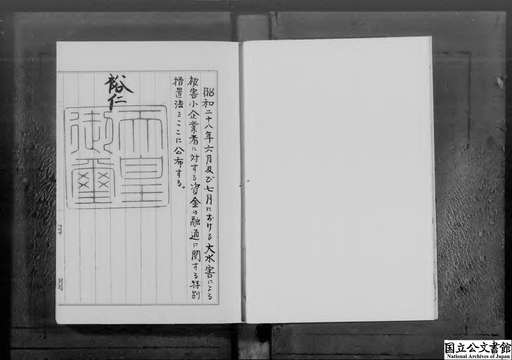 昭和二十八年六月及び七月における大水害による
被害小企業者に対する資金の融通に関する特別
措置法をここに公布する。
裕仁
天皇
御璽
国立公文書館
National Archives of Japan